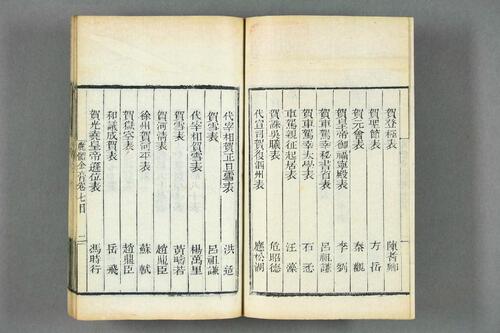 賀登極表 陳耆卿
賀聖節表 方岳
賀元會表 秦觀
賀皇帝御福寧殿表 李劉
賀車駕幸秘書省表 呂祖謙
賀車駕幸太學表 石𢘆
車駕親征起居表 汪藻
賀誅吳曦表 危昭德
代宣司賀復泗州表 應松湖
代宰相賀正旦雪表 洪适
賀雪表 呂祖謙
代宰相賀雪表 楊萬里
賀雪表 黃疇若
賀河清表 趙龍臣
徐州賀河平表 蘇軾
賀獄空表 趙龍臣
和議成賀表 岳飛
賀光堯皇帝遜位表 馮時行
卷七目 二